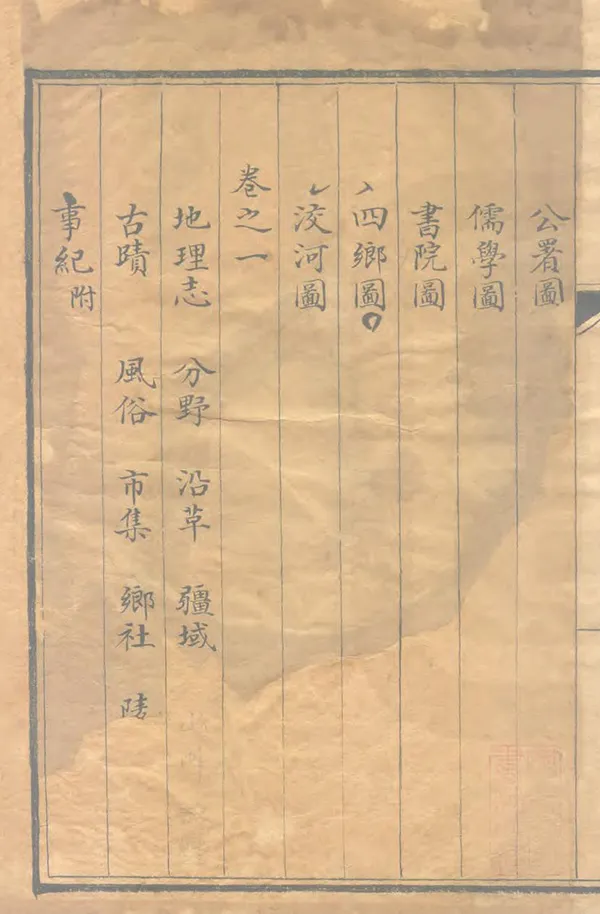 公署圖
儒學圖
書院圖
四鄉圖
洨河圖
卷之一
地理志 分野 沿草 疆域
古蹟 風俗 市集 鄉社
事紀附